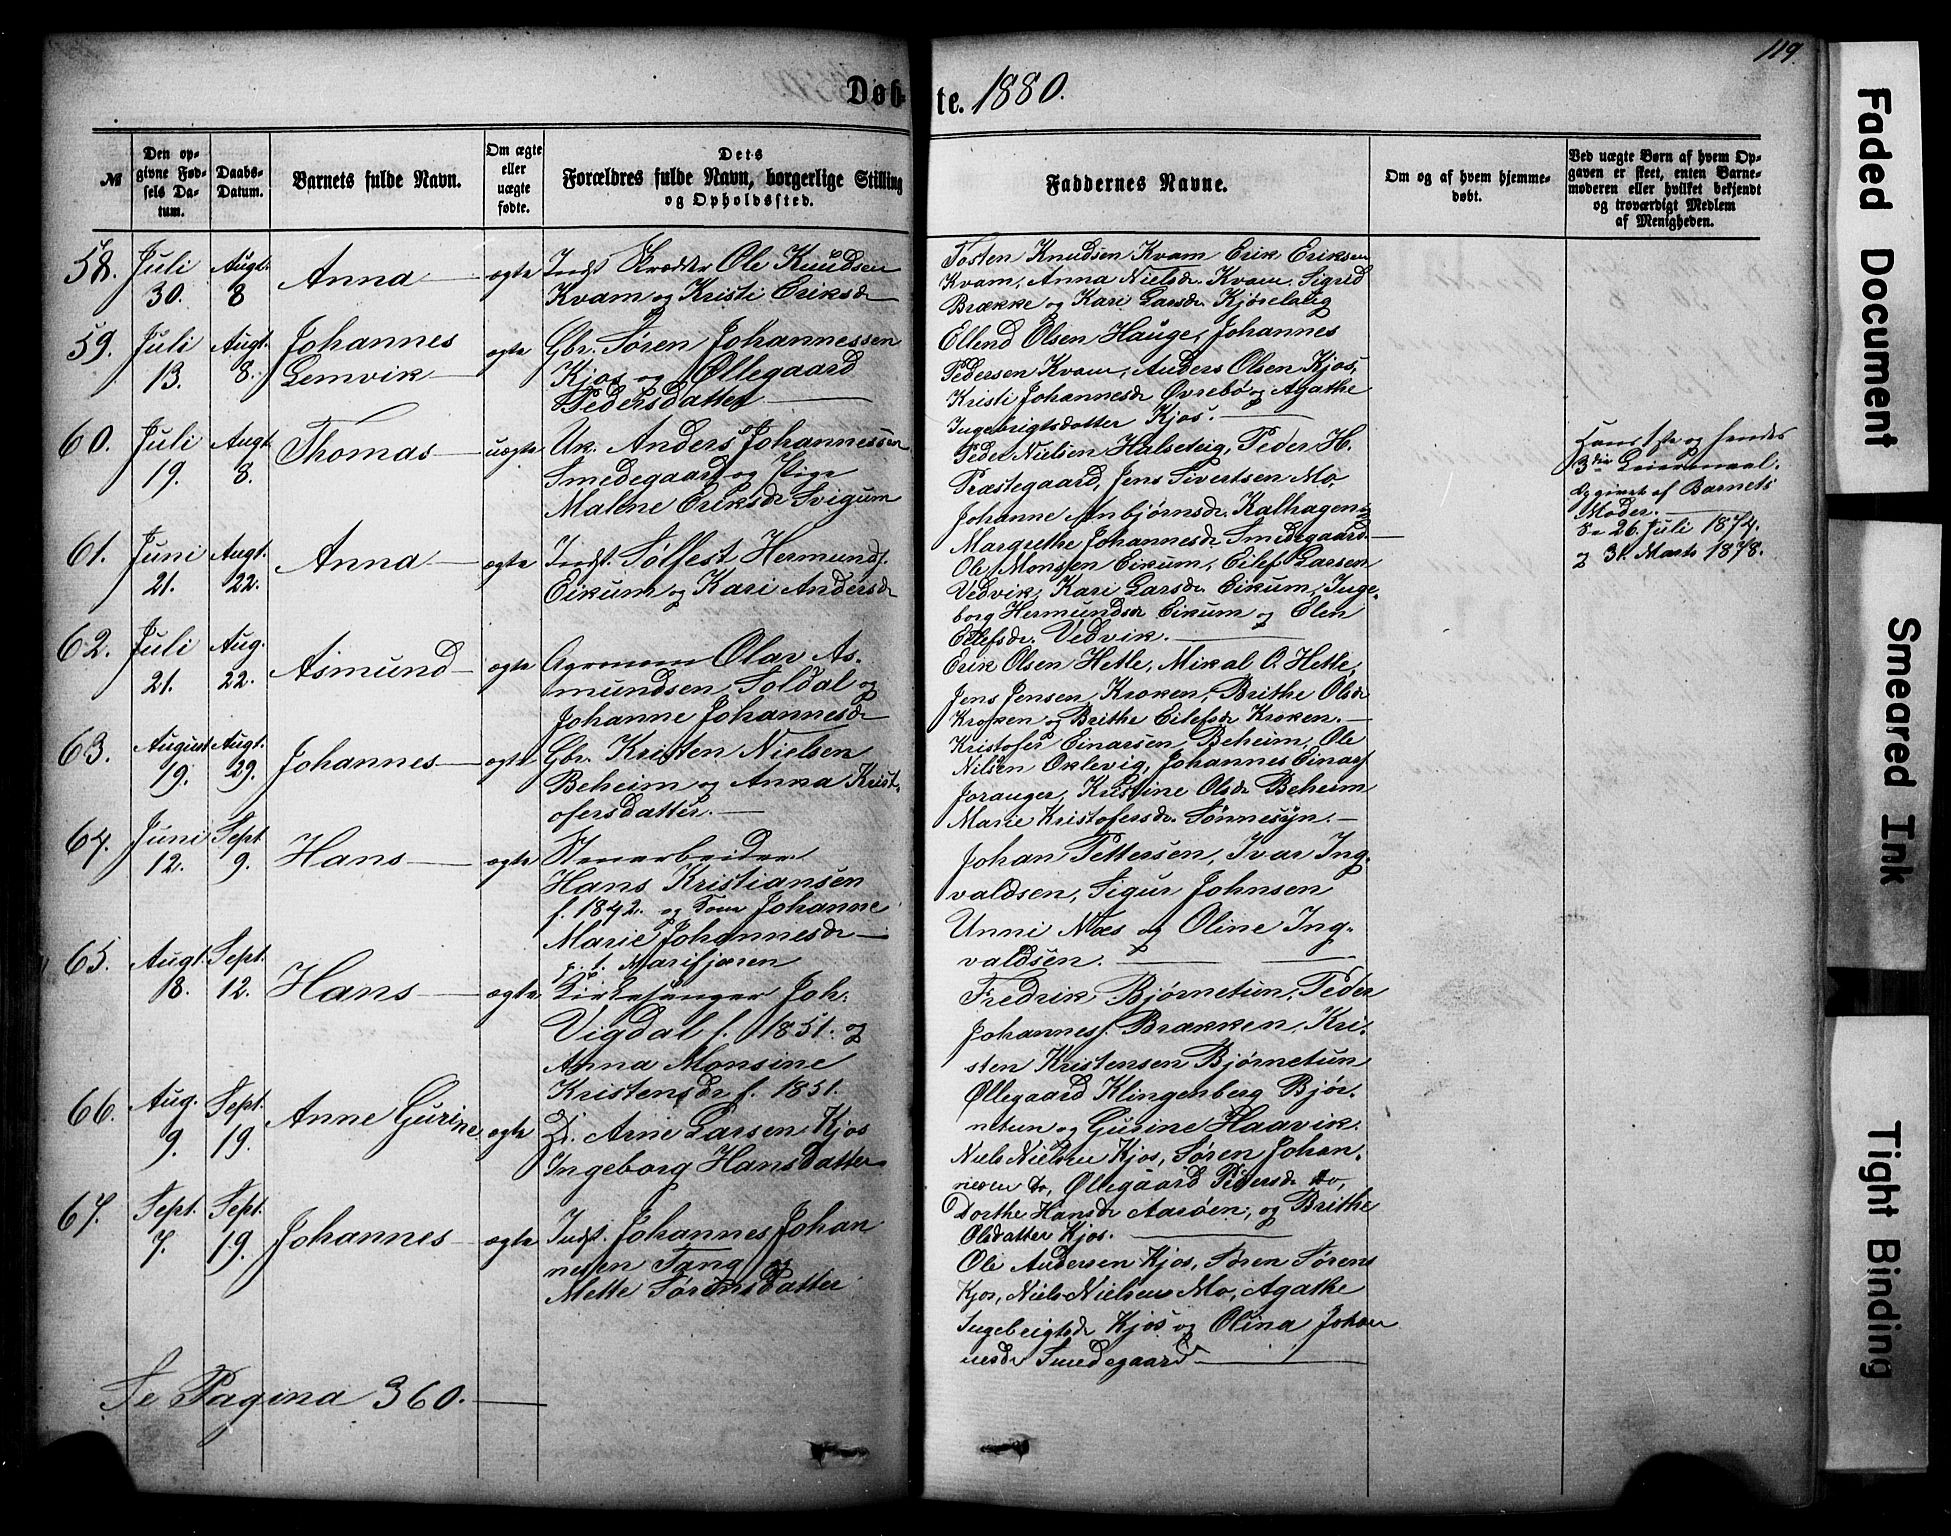 119.
Døb-te. 1880.
№
Den op-
givne Fød-
sels Da-
tum.
Daabs-
Datum.
Barnets fulde Navn.
Om ægte
eller
uægte
fødte.
Dets
Forældres fulde Navn, borgerlige Stilling
og Opholdssted.
Faddernes Navne.
Om og af hvem hjemme-
døbt.
Ved uægte Børn af hvem Op-
gaven er skeet, enten Barne-
moderen eller hvilket bekjendt
og troværdigt Medlem
af Menigheden.
58. Juli 30. Augt. 8 Anna ægte
Indst Skrædder Ole Knudsen
Kvam og Kristi Eriksdr
Tosten Knudsen Kvam Erik Eriksen
Kvam, Anna Nielsdr. Kvam, Sigrid
Brække og Kari Larsdr.
59. Juli 13. Augt. 8. Johannes
Lemvik ægte
Gbr. Søren Johannessen
Kjos og Øllegaard
Pedersdatter
Ellend Olsen Hauge, Johannes
Pedersen Kvam, Anders Olsen Kjos,
Kristi Johannesdr Øvrebø og Agathe
Ingebrigtsdotter Kjos.
60. Juli 19. Augt 8. Thomas uægte
Uk. Anders Johannessen
Smedegaard og Pige
Malene Eriksdr Svigum
Peder Nielsen Halsevig, Peder H.
Præstegaard, Jens Sivertsen Mo,
Johanne Anbjørnsdr. Kalhagen
Margrethe Johannesdr. Smedegaard.
Hans 1ste og hendes
3die Leiermaal.
Opgivet af Barnets
Moder.
26. Juli 1874.
31. Marts 1878.
61. Juni 21. Augt. 22. Anna ægte
Indst. Sølfest Hermunds.
Eikum og Kari Andersdr
Ole Monssen Eikum, Eilef Larsen
Vedvik, Kari Larsdr. Eikum, Inge-
borg Hermundsdr Eikum og Elen
Eilefsdr. Vedvik.
62. Juli 21. Aug. 22. Asmund ægte
Agronom Olav As-
mundsen Soldal og
Johanne Johannesdr
Erik Olsen Hetle, Mikal O. Hetle,
Jens Jensen Kroken, Brithe Olsdr
Kroken og Brithe Eilefsdr Kroken.
63. August 19. Augt. 29. Johannes ægte
Gbr. Kristen Nielsen
Beheim og Anna Krist-
ofersdatter.
Kristofer Einarsen Beheim, Ole
Nilsen Oklevig, Johannes Einars
Joranger, Kristine Olsdr Beheim
Marie Kristofersdr. Sønnesyn.
64. Juni 12. Sept 9. Hans ægte
Stenarbeider
Hans Kristiansen
f. 1842. og Kone Johanne
Marie Johannesdr
p. t. Marifjæren
Johan Pettersen, Ivar Ing-
valdsen, Sigur Johnsen
Unni Næs og Oline Ing-
valdsen.
65. Augt 8. Sept. 12. Hans ægte
Kirkesanger Joh.
Vigdal f. 1851. og
Anna Monsine
Kristensdr f. 1851.
Fredrik Bjørnetun, Peder
Johannes. Brækken, Kri-
sten Kristensen Bjørnetun
Øllegaard Klingenberg Bjør-
netun og Gurine Haavik.
66. Aug. 9. Sept. 19. Anne Gurine ægte
Arne Larsen Kjos
Ingeborg Hansdatter
Niels Nielsen Kjos, Søren Johan-
nesen do, Øllegaard Pedersdr do,
Dorthe Hansdr Aarøen, og Brithe
Olsdatter Kjos.
67. Sept. 7. Sept. 19. Johannes ægte
Indst. Johannes Johan
nessen Tang og
Mette Sørensdatter
Ole Andersen Kjos, Søren Sørens
Kjos, Niels Nielsen Mo, Agathe
Ingebrigtsdr Kjos og Olina Johan
nesdr Smedegaard
Se Pagina 360.
Faded Document
Smeared Ink
Tight Binding